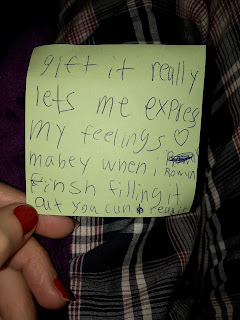 gift it really
lets me expres
my feelings ♡
mabey when i
Rowan
finsh filling it
out you can